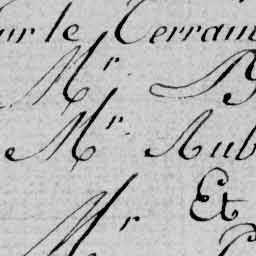 ur le Terrain
Mr
Mr Aub
Et
Mr